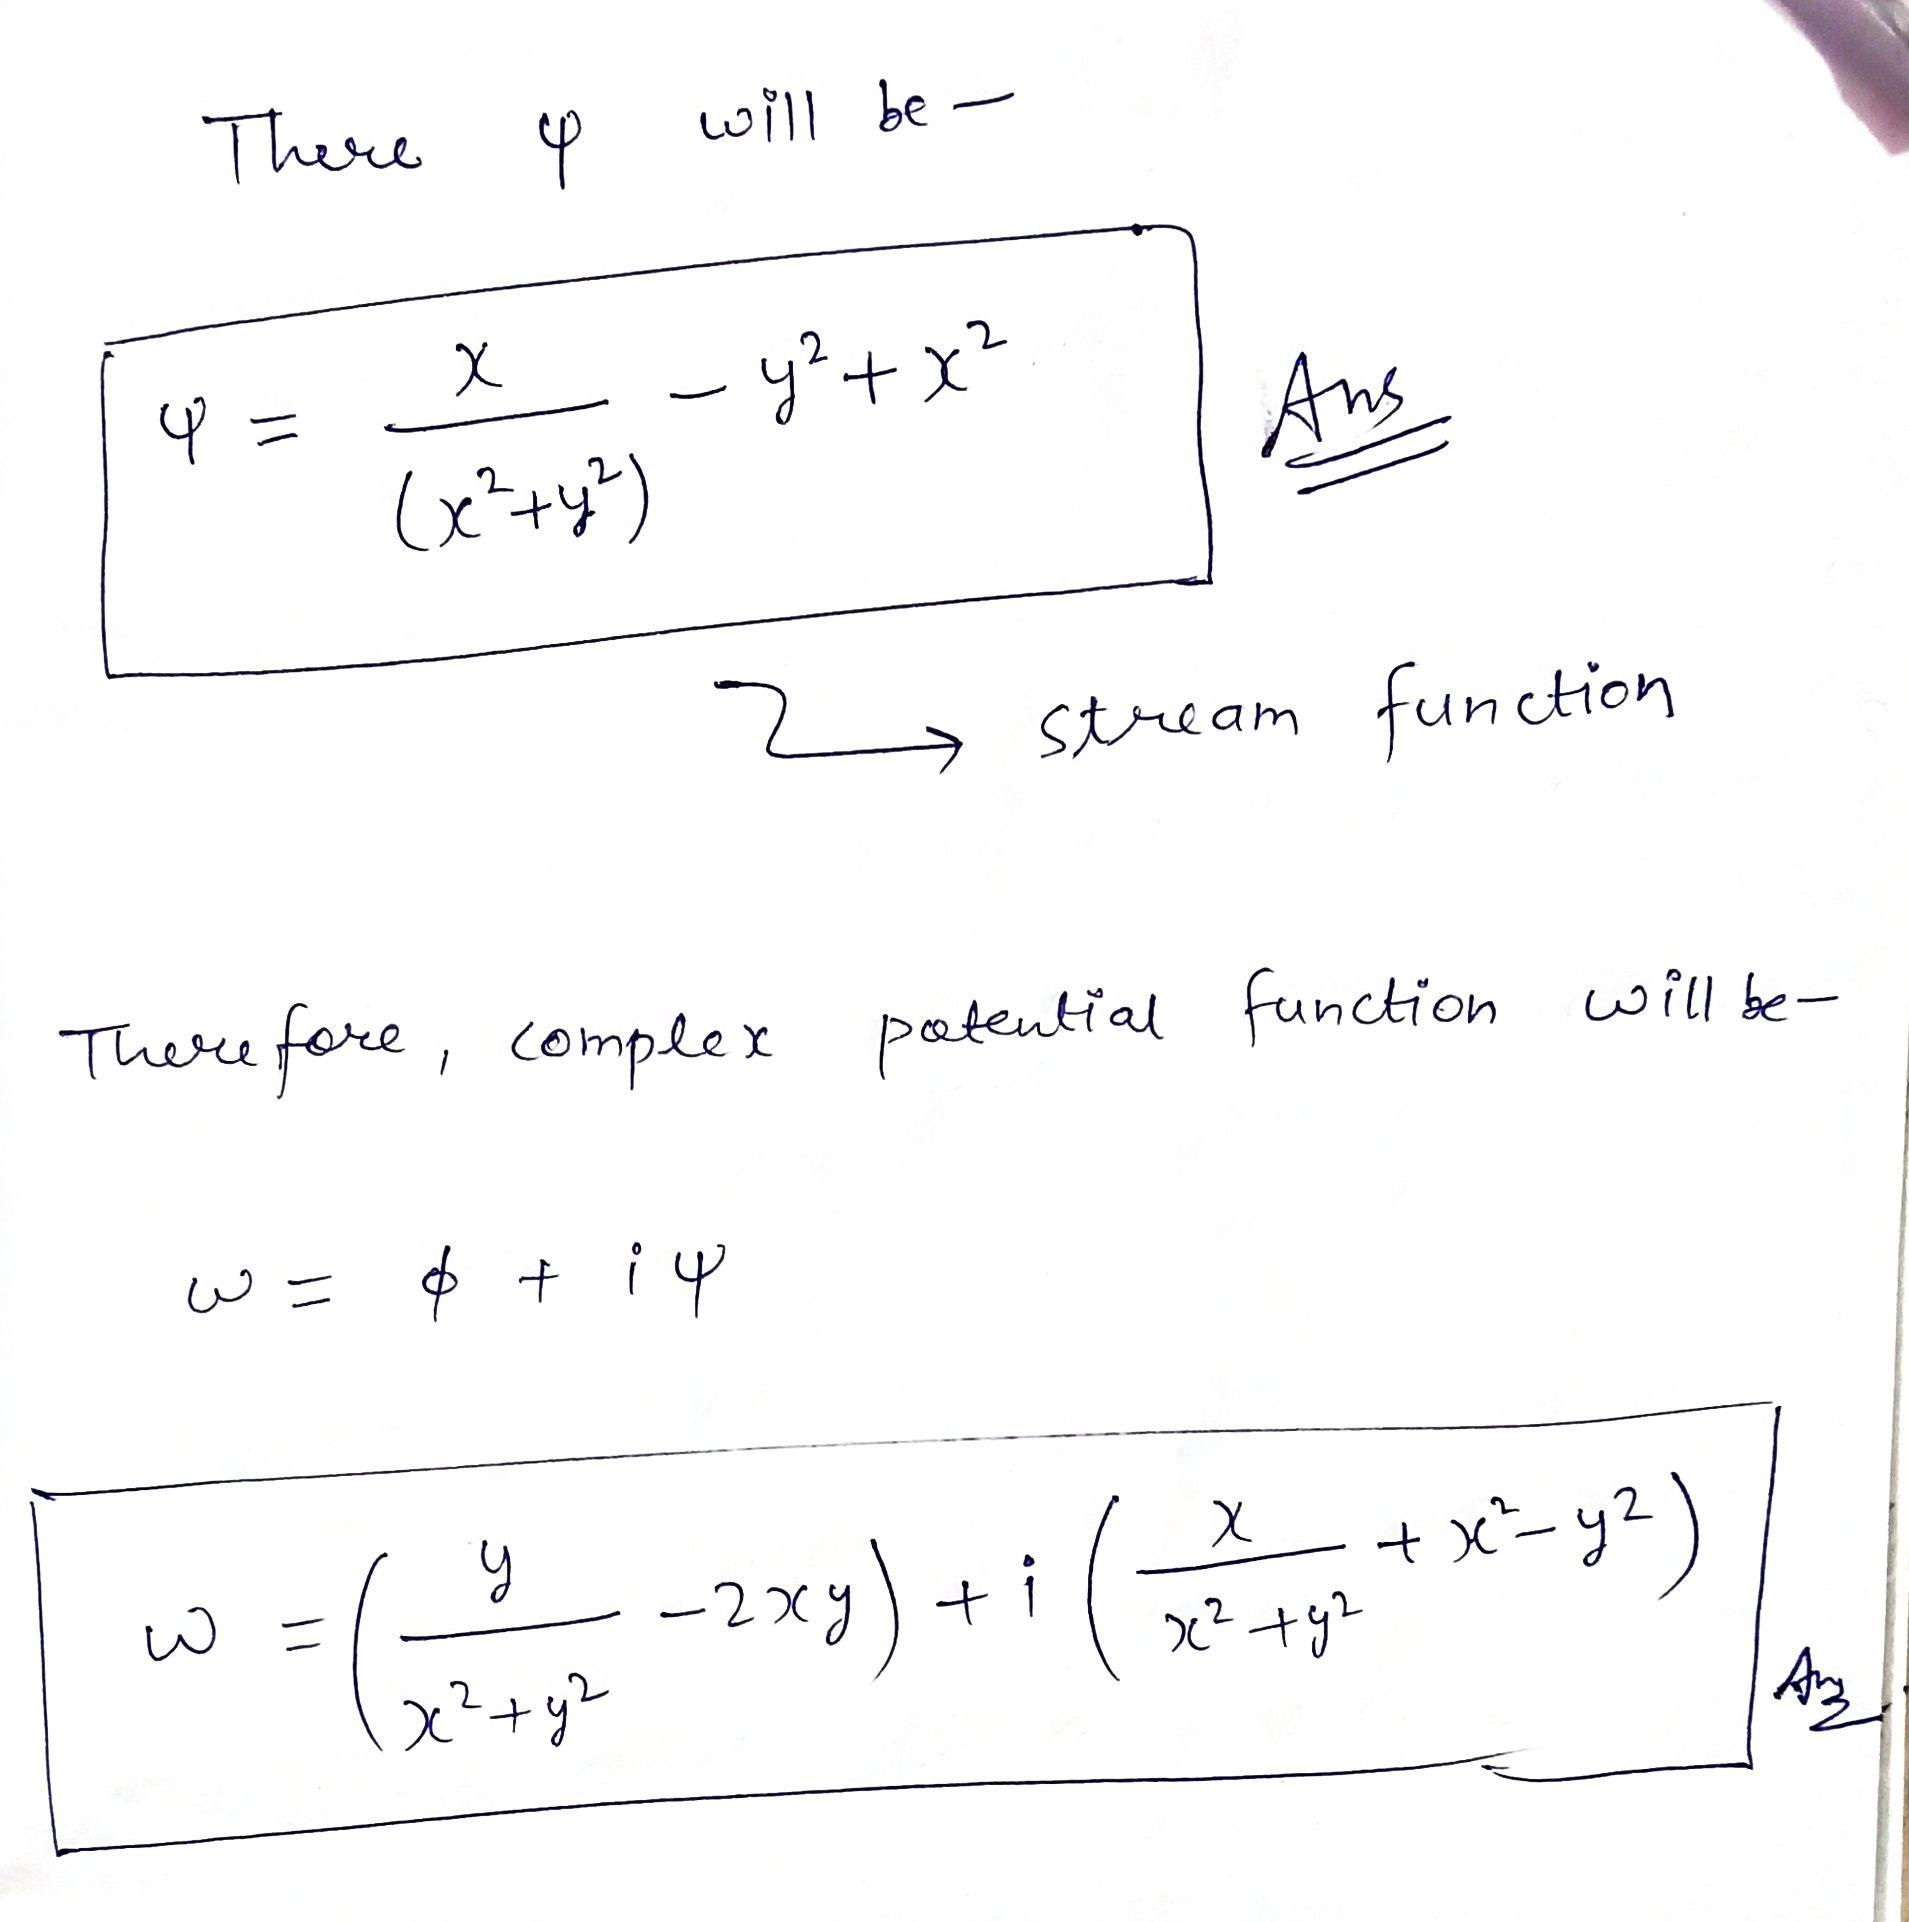 There ψ will be –
ψ = x / (x²+y²) – y² + x² Ans
→ stream function
Therefore, complex potential function will be –
ω = ϕ + iψ
ω = (y / x²+y² – 2xy) + i (x / x²+y² + x² – y²) Ans